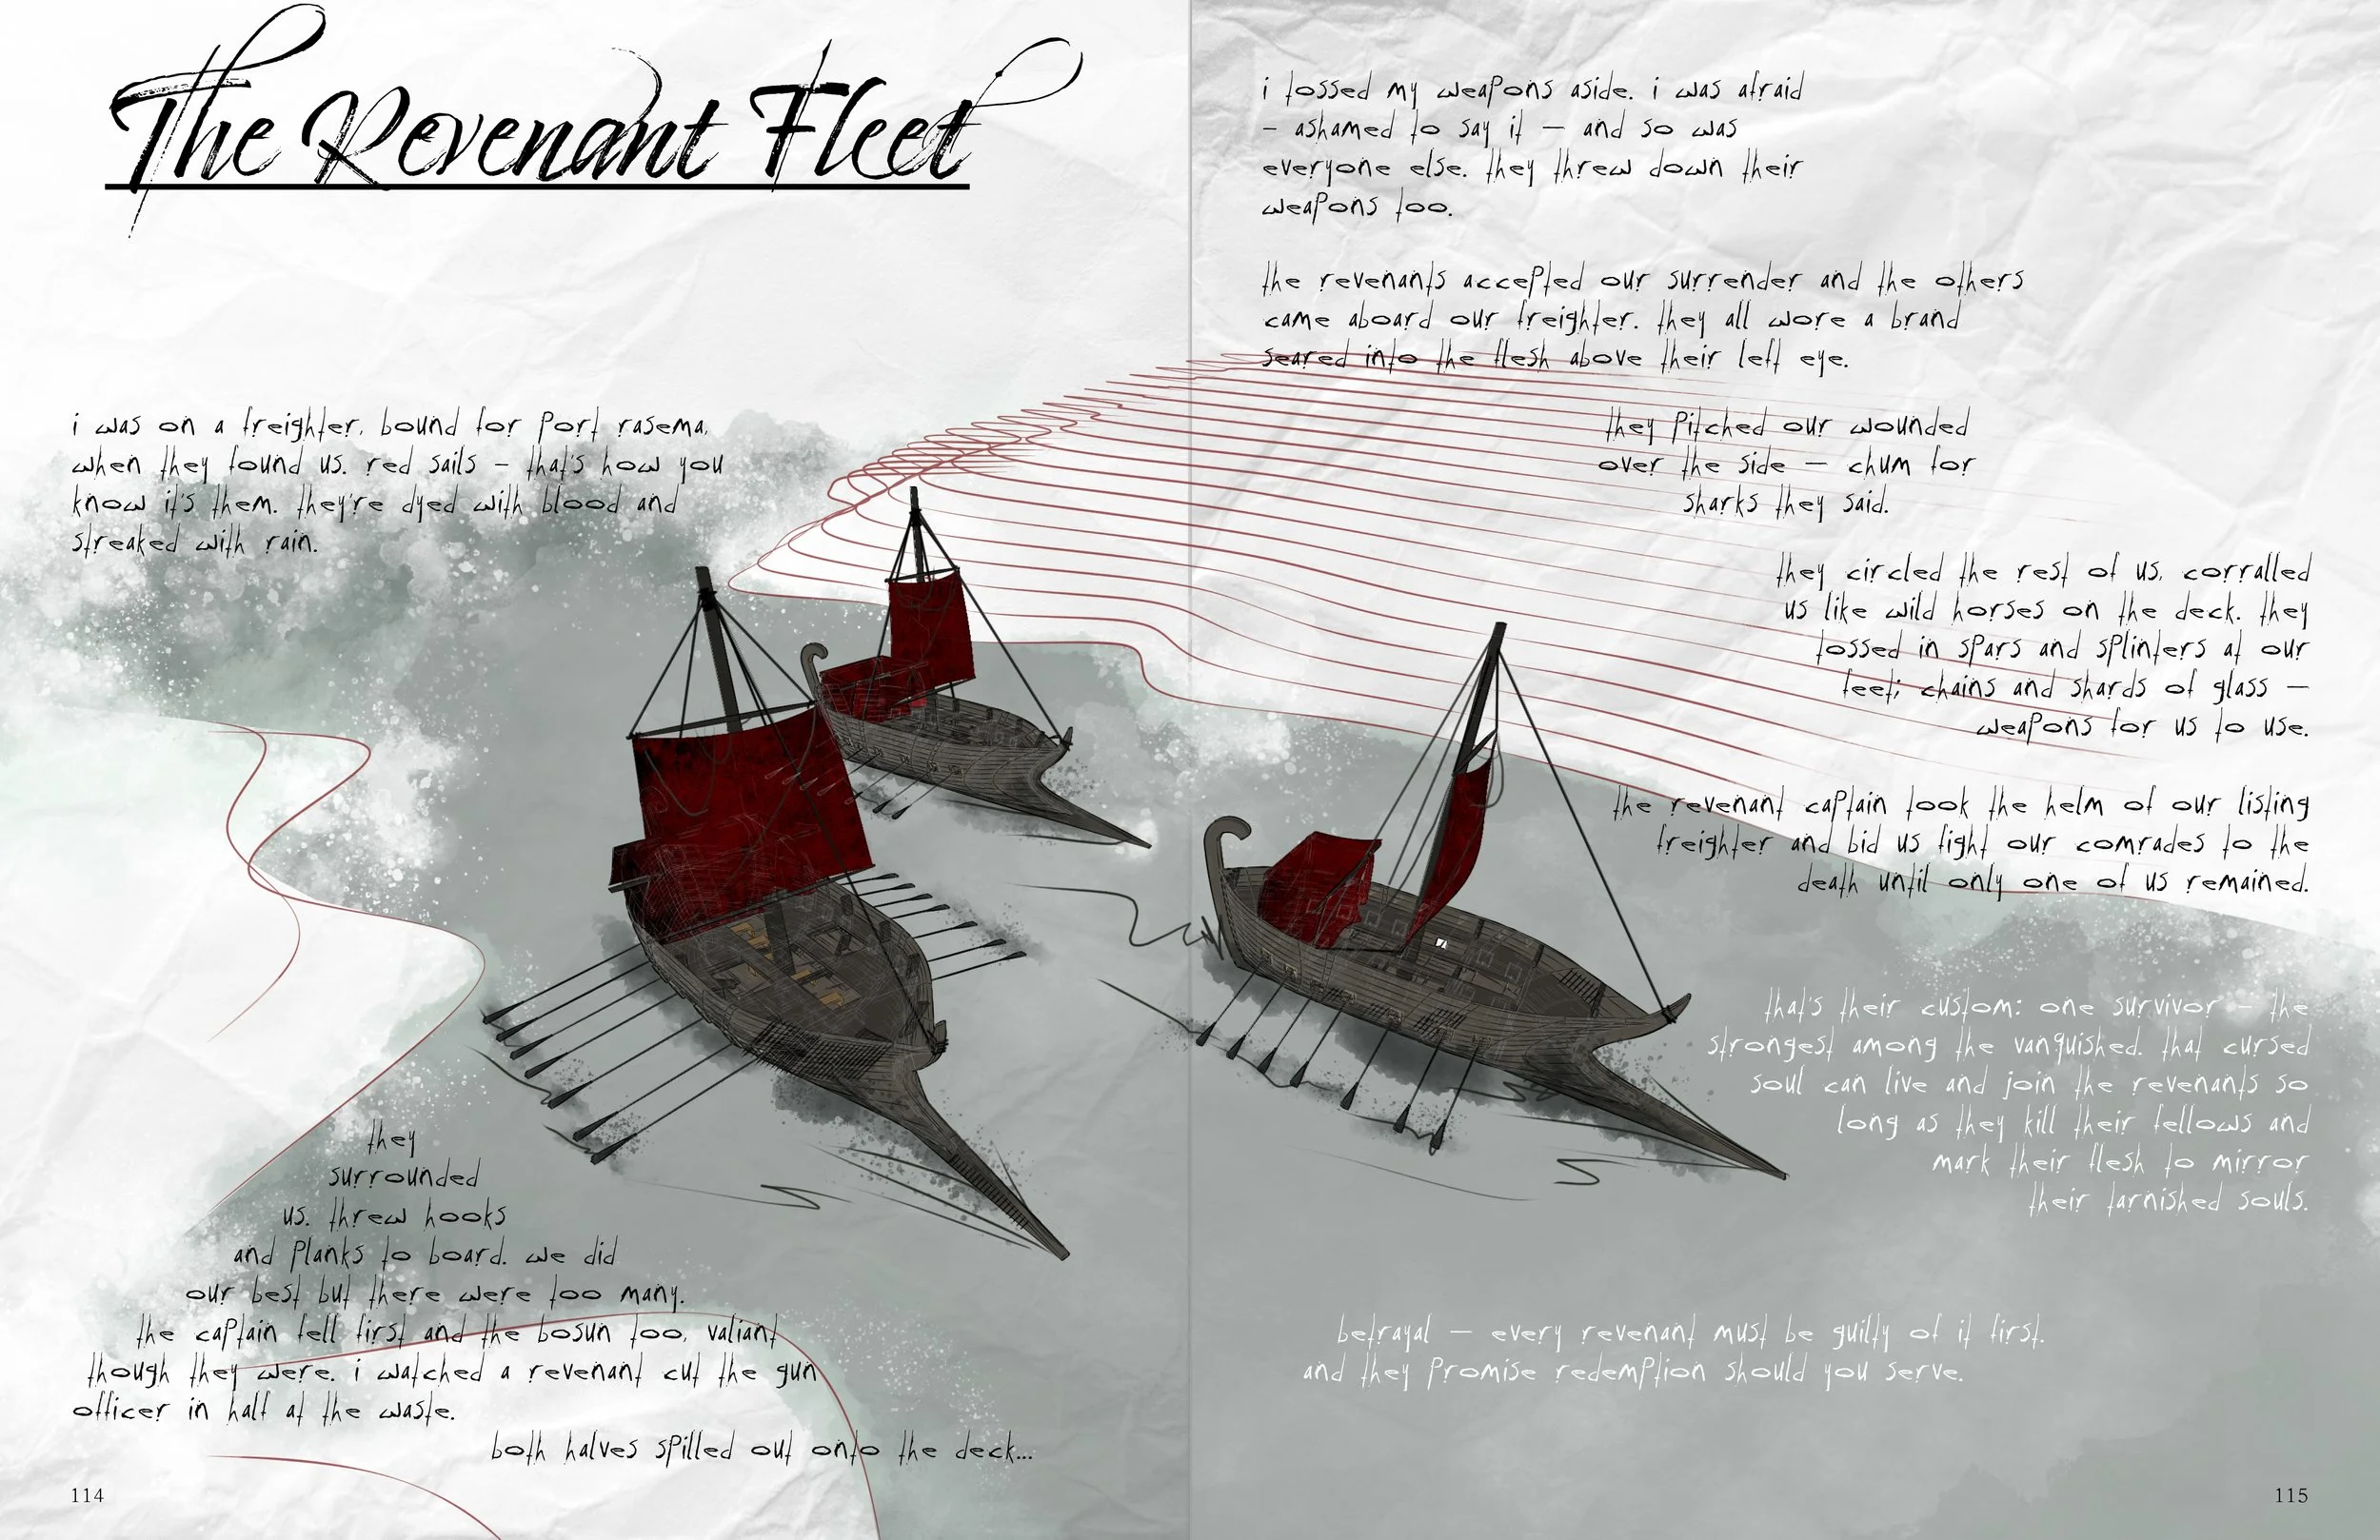 The Revenant Fleet
i was on a freighter, bound for port rasema,
when they found us. red sails – that's how you
know it's them. they're dyed with blood and
streaked with rain.
they
surrounded
us. threw hooks
and planks to board. we did
our best but there were too many.
the captain fell first and the bosun too, valiant
though they were. i watched a revenant cut the gun
officer in half at the waste.
both halves spilled out onto the deck...
114
i tossed my weapons aside. i was afraid
– ashamed to say it – and so was
everyone else. they threw down their
weapons too.
the revenants accepted our surrender and the others
came aboard our freighter. they all wore a brand
seared into the flesh above their left eye.
they pitched our wounded
over the side – chum for
sharks they said.
they circled the rest of us, corralled
us like wild horses on the deck. they
tossed in spars and splinters at our
feet; chains and shards of glass –
weapons for us to use.
the revenant captain took the helm of our listing
freighter and bid us fight our comrades to the
death until only one of us remained.
that's their custom: one survivor – the
strongest among the vanquished. that cursed
soul can live and join the revenants so
long as they kill their fellows and
mark their flesh to mirror
their tarnished souls.
betrayal – every revenant must be guilty of it first.
and they promise redemption should you serve.
115